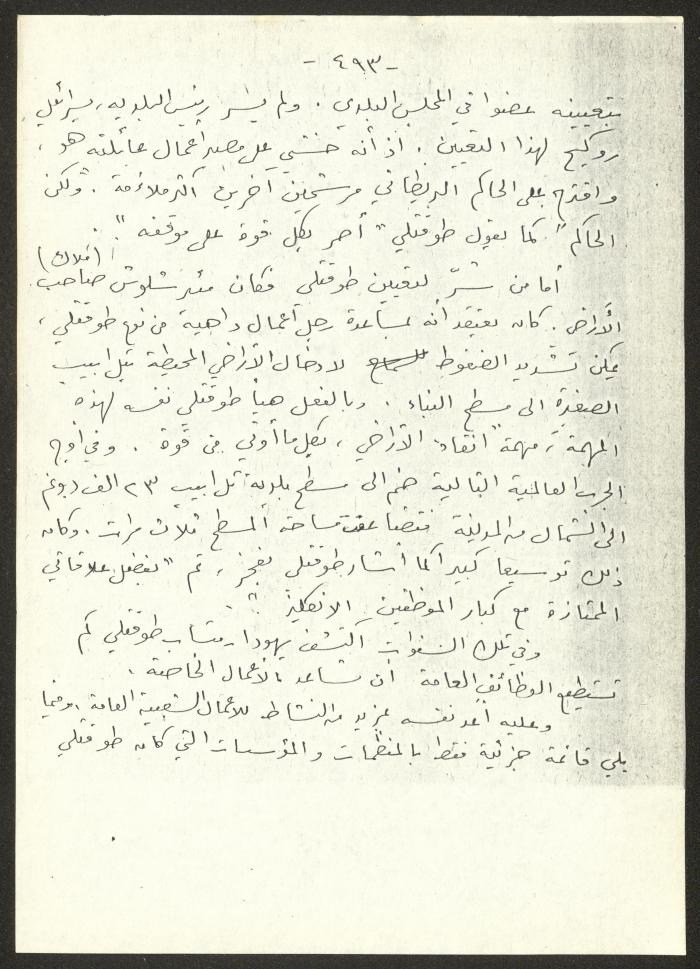 - ٤٩٣ -
بتعيينه عضوا في المجلس البلدي . ولم يسر رئيس البلدية ، يسرائيل
روكيح لهذا التعيين . اذ أنه خشي على مصير أعمال عائلته هو ،
واقترح على الحاكم البريطاني مرشحين آخرين أكثر ملاءمة . "ولكن
الحاكم" كما يقول طوفقلي "أصر بكل قوة على موقفه" .
أما من سُرّ لتعيين طوفقلي فكان مئير شلوش صاحب (املاك)
الأراضي . كان يعتقد أنه بمساعدة رجل أعمال داهية من نوع طوفقلي ،
يمكن تشديد الضغوط لادخال الأراضي المحيطة بتل ابيب
الصغيرة الى مسطح البناء . وبالفعل هيأ طوفقلي نفسه لهذه
المهمة ، مهمة "انقاذ الأراضي" ، بكل ما أوتي من قوة . وفي أوج
الحرب العالمية الثانية ضم الى مسطح بلدية تل ابيب ٢٣ الف دونم
الى الشمال من المدينة فتضاعفت مساحة المسطح ثلاث مرات . وكان
ذلك توسيعا كبيرا كما أشار طوفقلي بفخر ، تم "بفضل علاقاتي
الممتازة مع كبار الموظفين الانكليز" .
وفي تلك السنوات اكتشف يهودا متساب طوفقلي كم
تستطيع الوظائف العامة أن تساعد بالاعمال الخاصة .
وعليه أعد نفسه لمزيد من النشاط للاعمال الشعبية العامة . وفيما
يلي قائمة جزئية فقط بالمنظمات والمؤسسات التي كان طوفقلي